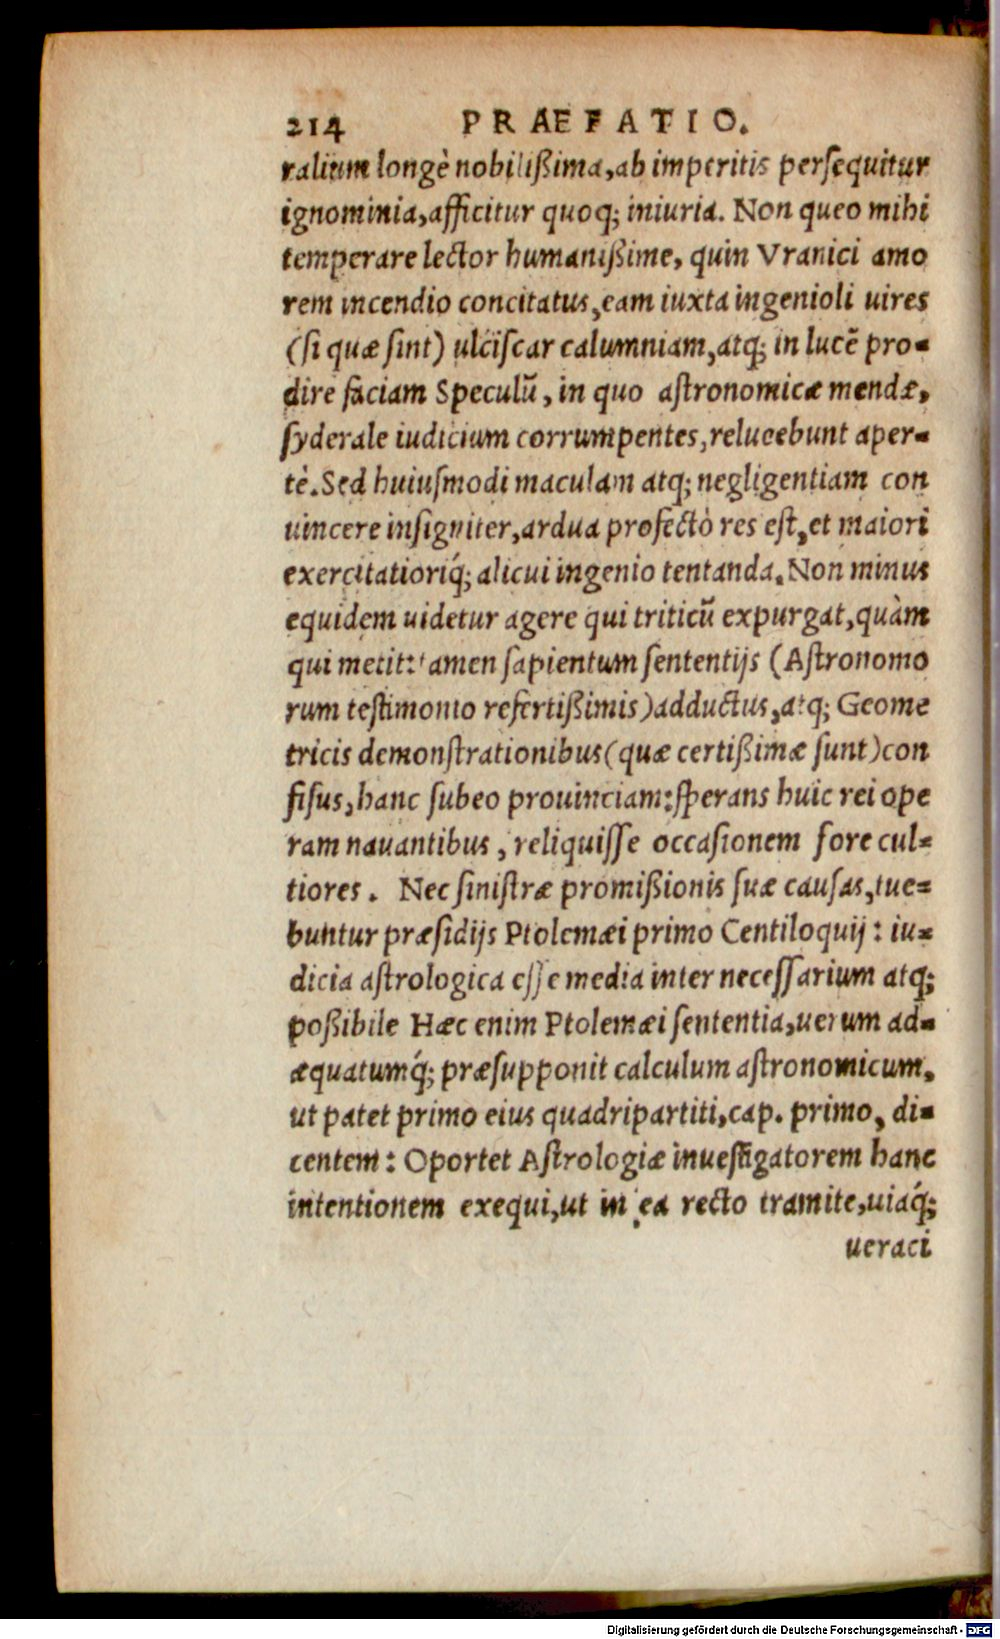 214 PRÆFATIO.
ralium longè nobilißima, ab imperitis perſequitur
ignominia, afficitur quoq; iniuria. Non queo mihi
temperare lector humanißime, quin Vranici amo
rem incendio concitatus, eam iuxta ingenioli uires
(ſi quæ ſint) ulciſcar calumniam, atq; in lucẽ pro-
dire faciam Speculũ, in quo aſtronomicæ mendæ,
ſyderale iudicium corrumpentes, relucebunt aper-
tè. Sed huiuſmodi maculam atq; negligentiam con
uincere inſigniter, ardua profectò res eſt, et maiori
exercitatioriq́; alicui ingenio tentanda. Non minus
equidem uidetur agere qui triticũ expurgat, quàm
qui metit: tamen ſapientum ſententijs (Aſtronomo
rum teſtimonio refertißimis) adductus, atq; Geome
tricis demonſtrationibus (quæ certißimæ ſunt) con
fiſus, hanc ſubeo prouinciam: ſperans huic rei ope
ram nauantibus, reliquiſſe occaſionem fore cul-
tiores. Nec ſiniſtræ promißionis ſuæ cauſas, tue-
buntur præſidijs Ptolemæi primo Centiloquij: iu-
dicia aſtrologica eſſe media inter neceſſarium atq;
poßibile Hæc enim Ptolemæi ſententia, uerum ad-
æquatumq́; præſupponit calculum aſtronomicum,
ut patet primo eius quadripartiti, cap. primo, di-
centem: Oportet Aſtrologiæ inueſtigatorem hanc
intentionem exequi, ut in ea recto tramite, uiaq́;
ueraci
Digitalisierung gefördert durch die Deutsche Forschungsgemeinschaft - DFG